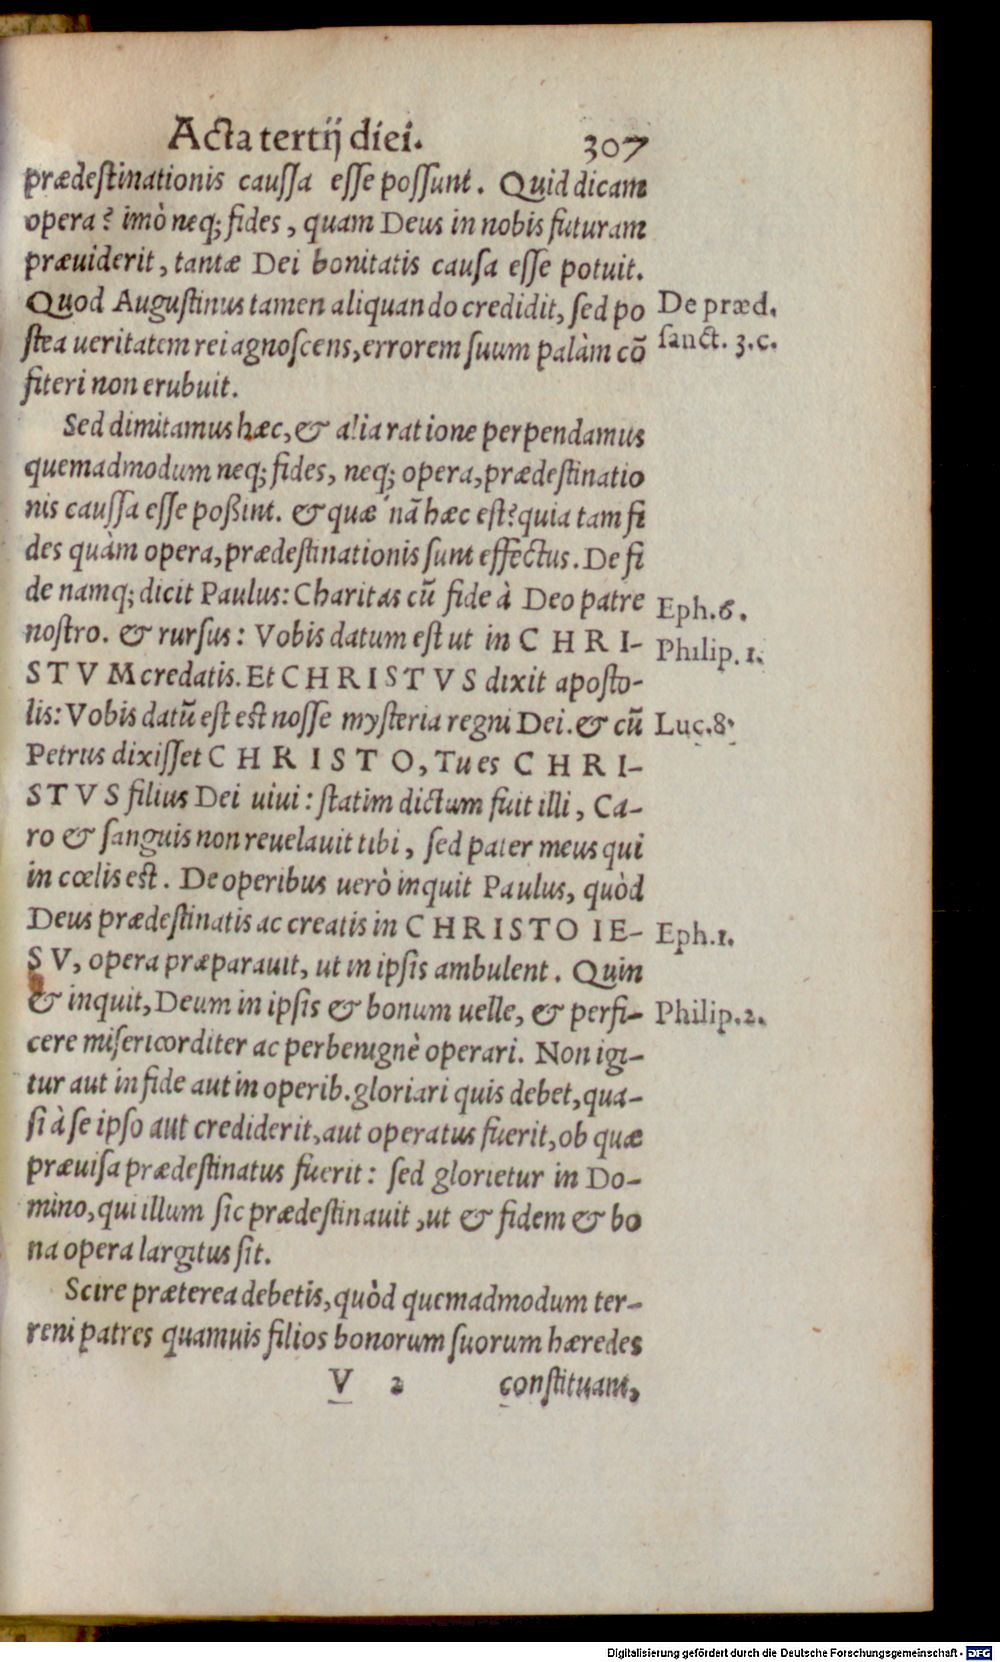 Acta tertij diei. 307
prædestinationis caussa esse possunt. Quid dicam
opera? imò neq; fides, quam Deus in nobis futuram
præuiderit, tantæ Dei bonitatis causa esse potuit.
Quod Augustinus tamen aliquando credidit, sed po De præd.
stea ueritatem rei agnoscens, errorem suum palàm cō sanct. 3.c.
fiteri non erubuit.
Sed dimitamus hæc, & alia ratione perpendamus
quemadmodum neq; fides, neq; opera, prædestinatio
nis caussa esse poßint. & quæ nā hæc est? quia tam fi
des quàm opera, prædestinationis sunt effectus. De fi
de namq; dicit Paulus: Charitas cū fide à Deo patre Eph.6.
nostro. & rursus: Vobis datum est ut in CHRI- Philip.1.
STVM credatis. Et CHRISTVS dixit aposto-
lis: Vobis datū est est nosse mysteria regni Dei. & cū Luc.8.
Petrus dixisset CHRISTO, Tu es CHRI-
STVS filius Dei uiui: statim dictum fuit illi, Ca-
ro & sanguis non reuelauit tibi, sed pater meus qui
in cœlis est. De operibus uerò inquit Paulus, quòd
Deus prædestinatis ac creatis in CHRISTO IE- Eph.1.
SV, opera præparauit, ut in ipsis ambulent. Quin
& inquit, Deum in ipsis & bonum uelle, & perfi- Philip.2.
cere misericorditer ac perbenignè operari. Non igi-
tur aut in fide aut in operib. gloriari quis debet, qua-
si à se ipso aut crediderit, aut operatus fuerit, ob quæ
præuisa prædestinatus fuerit: sed glorietur in Do-
mino, qui illum sic prædestinauit, ut & fidem & bo
na opera largitus sit.
Scire præterea debetis, quòd quemadmodum ter-
reni patres quamuis filios bonorum suorum hæredes
V 2 constituant,
Digitalisierung gefördert durch die Deutsche Forschungsgemeinschaft - DFG